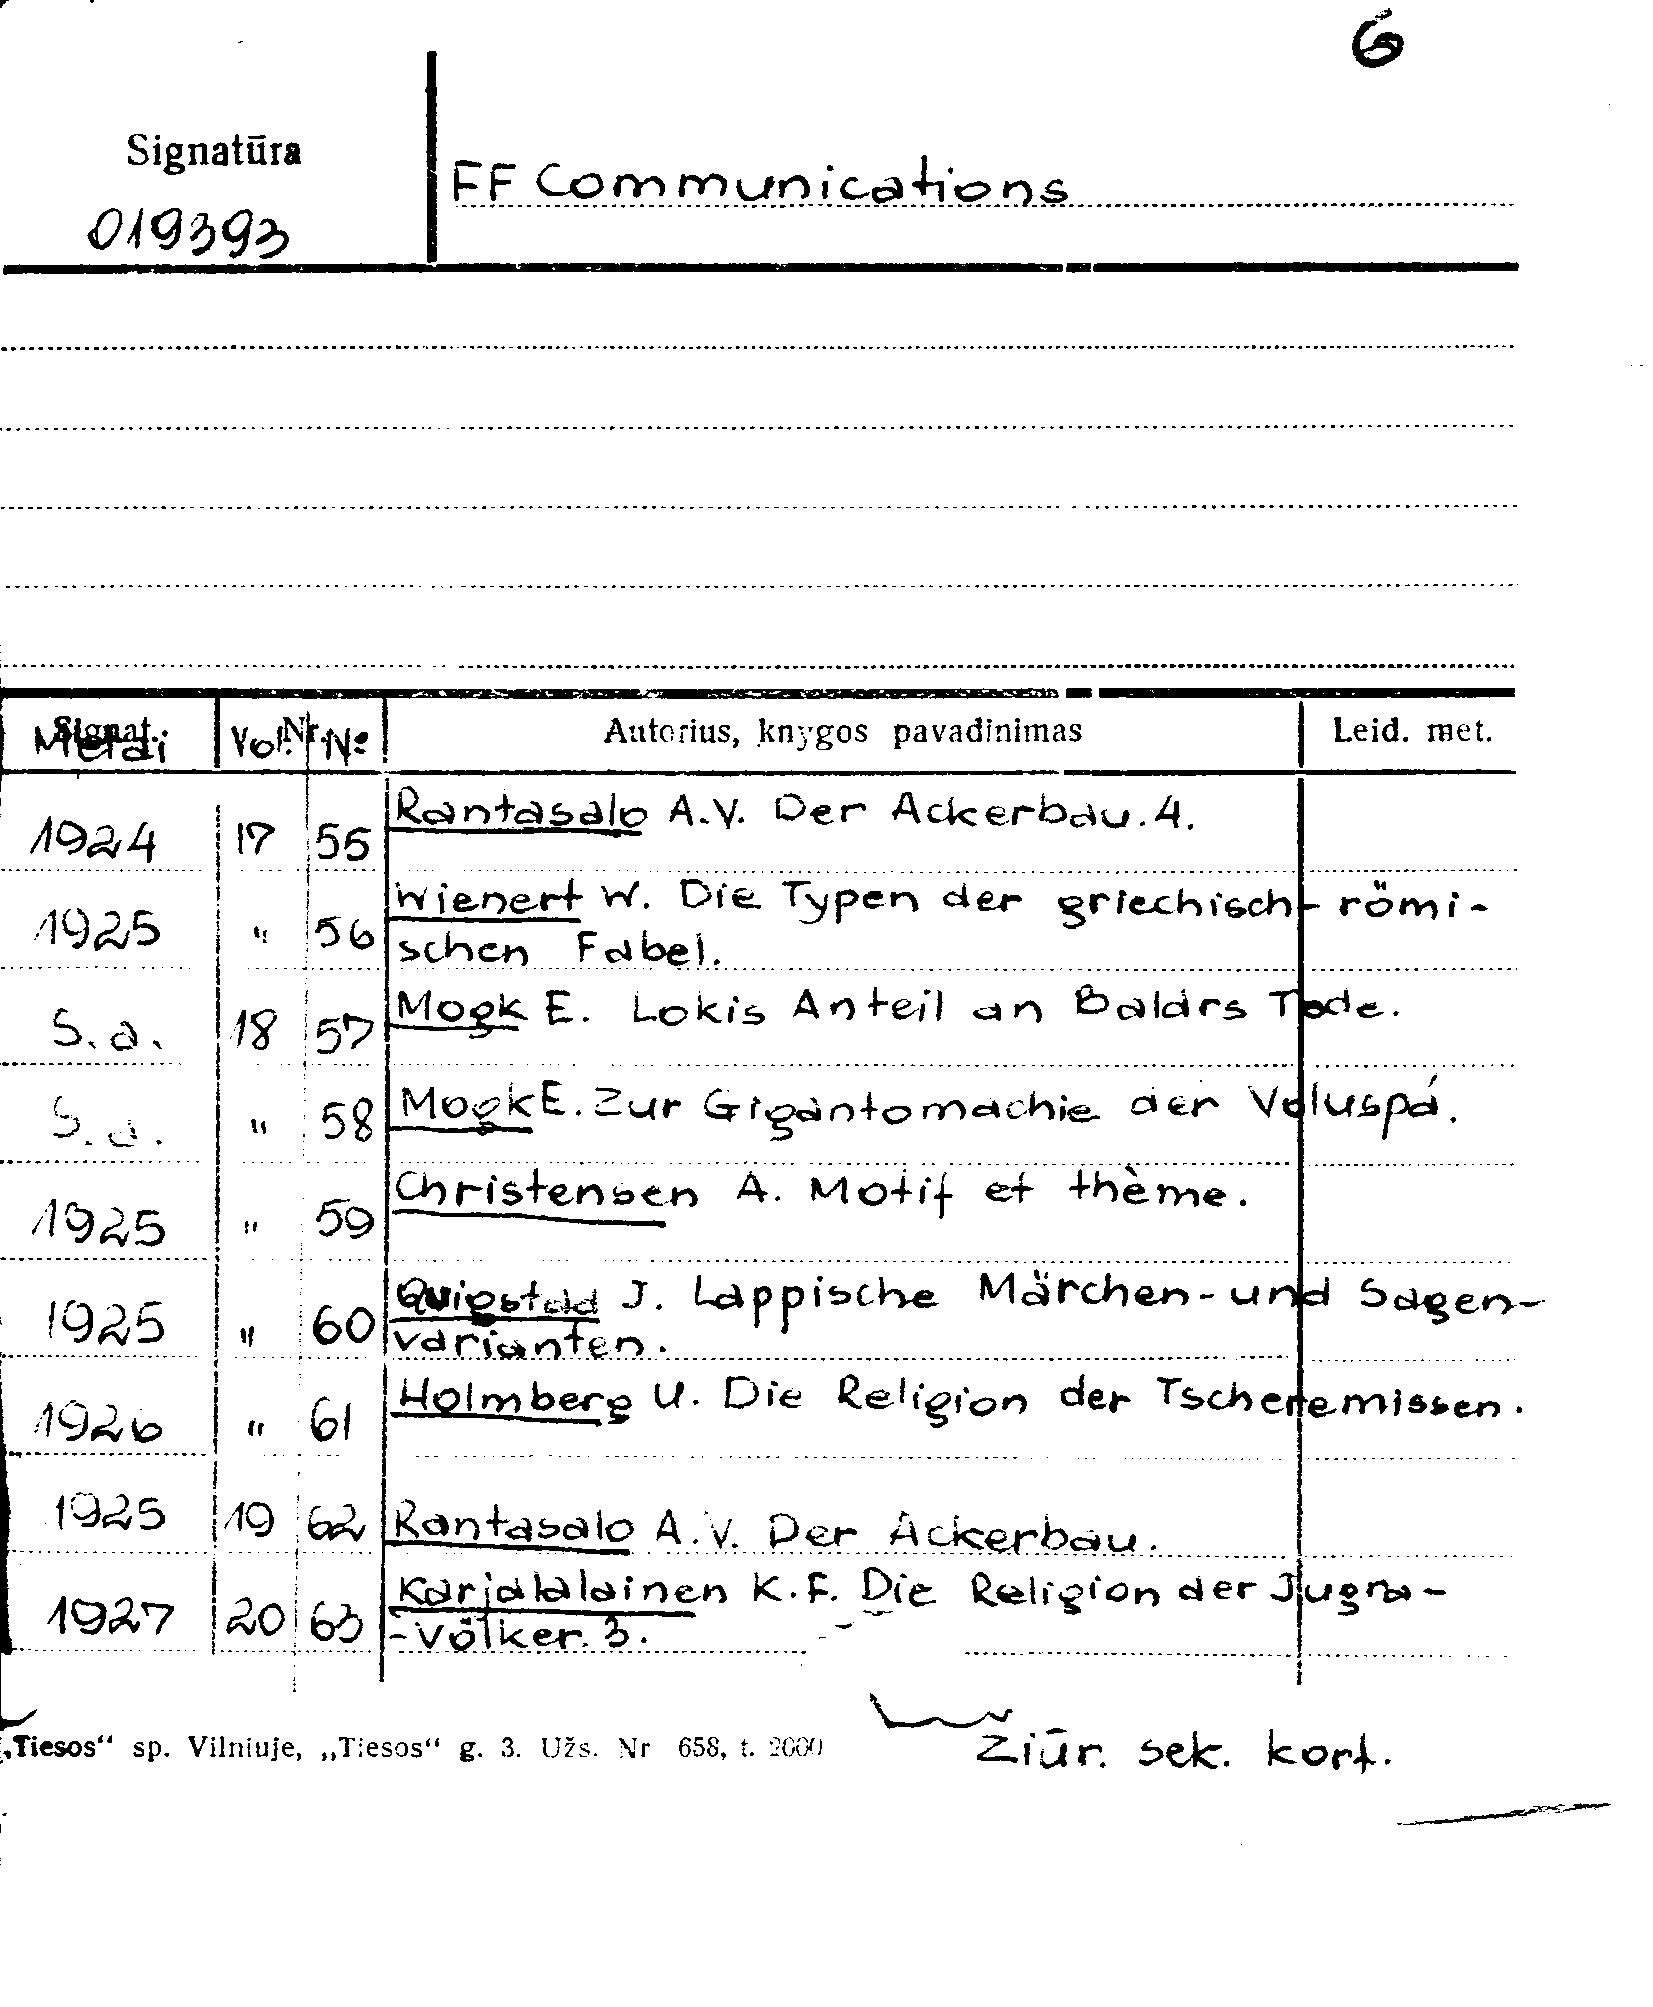 6
Signatūra
FF Communications
019393
Signat. Nr. Autorius, knygos pavadinimas Leid. met.
Metai Vol. №
1924 17 55 Rantasalo A.V. Der Ackerbau. 4.
1925 " 56 Wienert W. Die Typen der griechisch-römi-
schen Fabel.
S. a. 18 57 Mogk E. Lokis Anteil an Baldrs Tode.
S. a. " 58 Mogk E. Zur Gigantomachie der Voluspá.
1925 " 59 Christensen A. Motif et thème.
1925 " 60 Quigstad J. Lappische Märchen- und Sagen-
varianten.
1926 " 61 Holmberg U. Die Religion der Tscheremissen.
1925 19 62 Rantasalo A.V. Der Ackerbau.
1927 20 63 Karjalalainen K.F. Die Religion der Jugra-
-Völker. 3.
„Tiesos“ sp. Vilniuje, „Tiesos“ g. 3. Užs. Nr 658, t. 2000
Žiūr. sek. kort.